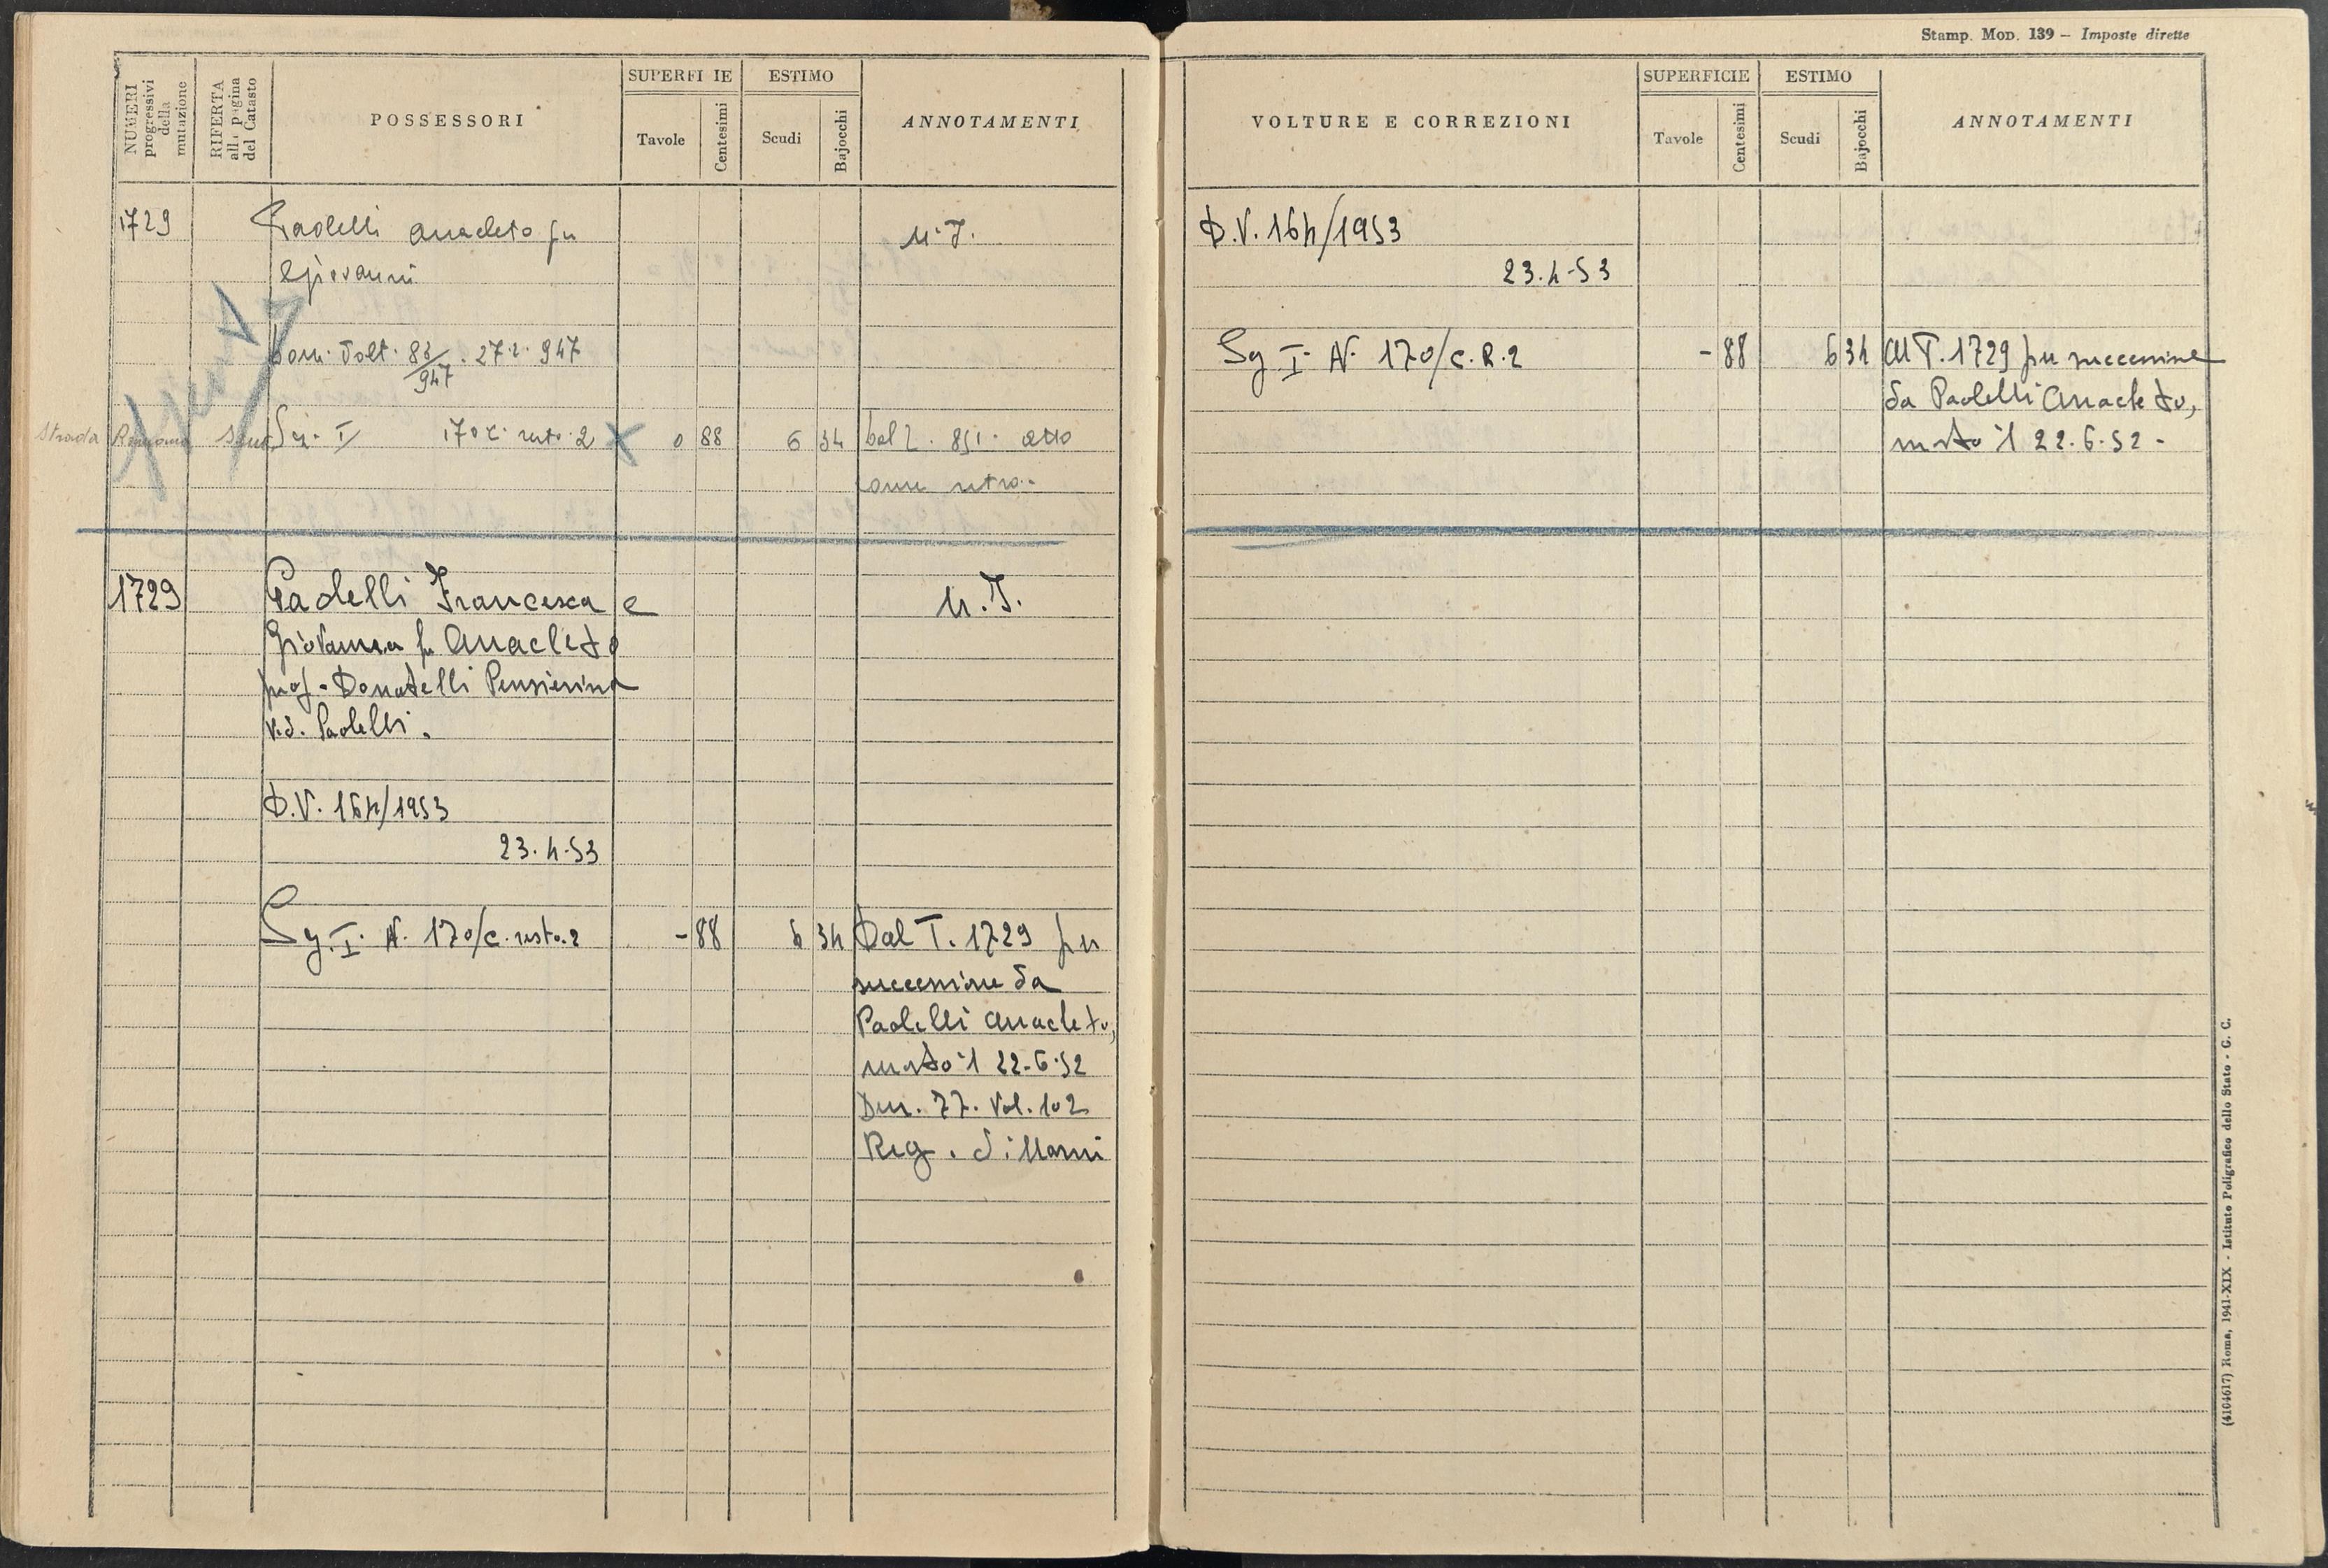 Stamp. Mod. 139 — Imposte dirette
NUMERI progressivi della mutazione
RIFERTA alla pagina del Catasto
POSSESSORI
SUPERFI IE
Tavole
Centesimi
ESTIMO
Scudi
Bajocchi
ANNOTAMENTI
1729
Paolelli Anacleto fu
Giovanni
N. I.
Dom. Volt. 82/947 . 27.2.947
Strada Romana
Sez. I 170 c. resto 2 0 88 6 34
come retro.
1729
Paolelli Francesca e
Giovanna fu Anacleto
prof. Donatelli Pensierina
V.d. Paolelli.
N. I.
D.V. 164/1953
23.4.53
Sez. I. N. 170/c. resto. 2 - 88 6 34 Dal T. 1729 per
successione da
Paolelli Anacleto,
morto il 22-6-52
Den. 77. Vol. 102
Reg. di Narni
VOLTURE E CORREZIONI
SUPERFICIE
Tavole
Centesimi
ESTIMO
Scudi
Bajocchi
ANNOTAMENTI
D.V. 164/1953
23.4-53
Sez I. N. 170/c. R. 2 - 88 6 34 Al T. 1729 per successione
da Paolelli Anacleto,
morto il 22.6.52 -
(4104617) Roma, 1941-XIX - Istituto Poligrafico dello Stato - G. C.